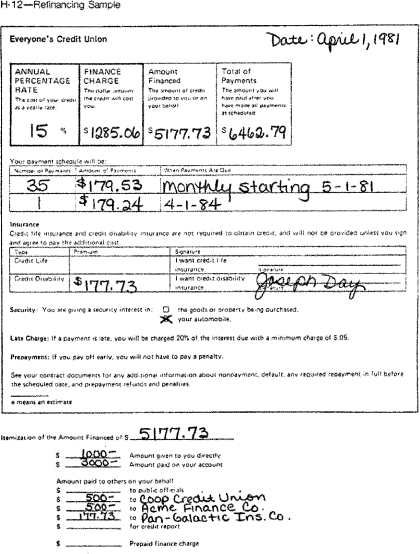 H-12—Refinancing Sample
Everyone's Credit Union Date: April 1, 1981
ANNUAL PERCENTAGE RATE
The cost of your credit as a yearly rate.
15 %
FINANCE CHARGE
The dollar amount the credit will cost you.
$1285.06
Amount Financed
The amount of credit provided to you or on your behalf
$5177.73
Total of Payments
The amount you will have paid after you have made all payments as scheduled
$6462.79
Your payment schedule will be:
Number of Payments Amount of Payments When Payments Are Due
35 $179.53 monthly starting 5-1-81
1 $179.24 4-1-84
Insurance
Credit life insurance and credit disability insurance are not required to obtain credit, and will not be provided unless you sign
and agree to pay the additional cost
Type Premium Signature
Credit Life I want credit life insurance. Signature
Credit Disability $177.73 I want credit disability insurance. Joseph Day
Security: You are giving a security interest in: the goods or property being purchased.
your automobile.
Late Charge: If a payment is late, you will be charged 20% of the interest due with a minimum charge of $.05.
Prepayment: If you pay off early, you will not have to pay a penalty.
See your contract documents for any additional information about nonpayment, default, any required repayment in full before
the scheduled date, and prepayment refunds and penalties.
e means an estimate
Itemization of the Amount Financed of $ 5177.73
$ 1000- Amount given to you directly
$ 3000- Amount paid on your account
Amount paid to others on your behalf
$ to public officials
$ 500- to Coop Credit Union
$ 500- to Acme Finance Co.
$ 177.73 to Pan-Galactic Ins. Co.
$ for credit report
$ Prepaid finance charge